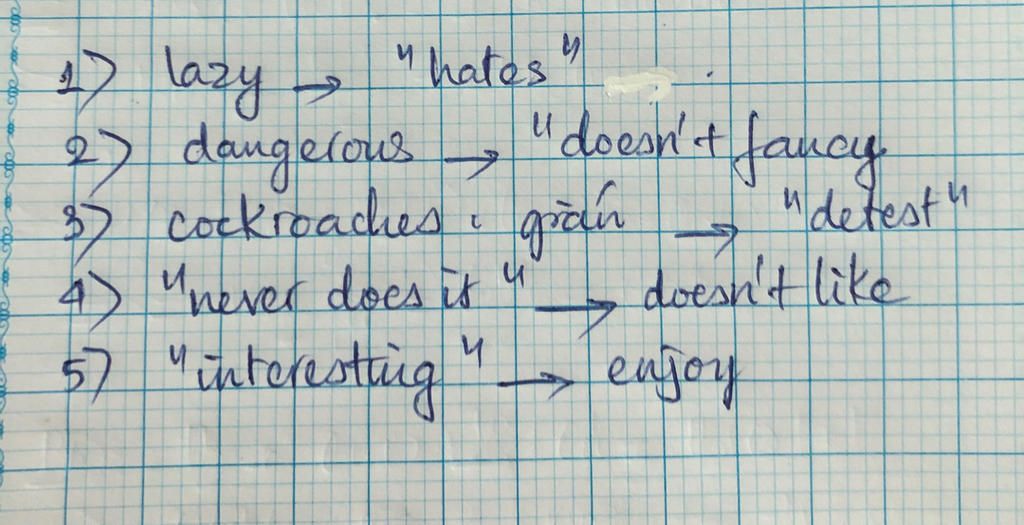 1) lazy → "hates"
2) dangerous → "doesn't fancy
3) cockroaches : gián → "detest"
4) "never does it" → doesn't like
5) "interesting" → enjoy